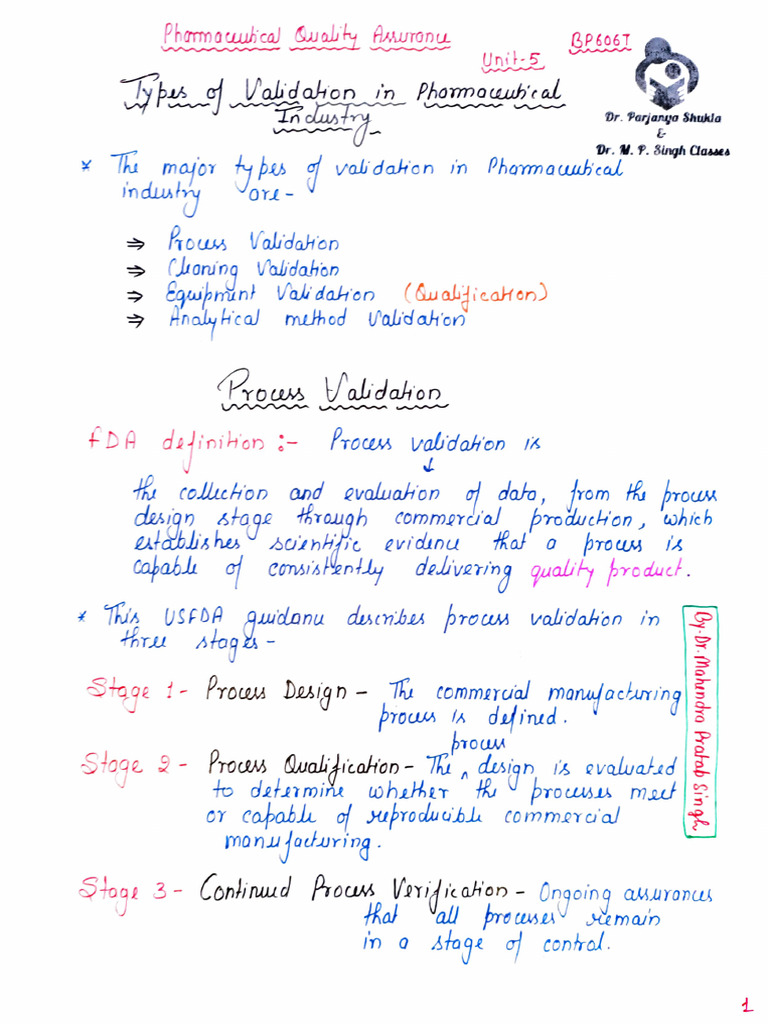 Pharmaceutical Quality Assurance
BP606T
Unit-5
Types of Validation in Pharmaceutical
Industry
Dr. Parjanya Shukla
&
Dr. M. P. Singh Classes
* The major types of validation in Pharmaceutical
industry are-
⇒ Process Validation
⇒ Cleaning Validation
⇒ Equipment Validation (Qualification)
⇒ Analytical method Validation
Process Validation
FDA definition :- Process validation is
↓
the collection and evaluation of data, from the process
design stage through commercial production, which
establishes scientific evidence that a process is
capable of consistently delivering quality product.
* This USFDA guidance describes process validation in
three stages-
Stage 1- Process Design - The commercial manufacturing
process is defined.
Stage 2 - Process Qualification- The ^ process design is evaluated
to determine whether the processes meet
or capable of reproducible commercial
manufacturing.
Stage 3 - Continued Process Verification - Ongoing assurances
that all processes remain
in a stage of control.
By.Dr.Mahendra Pratab Singh
1